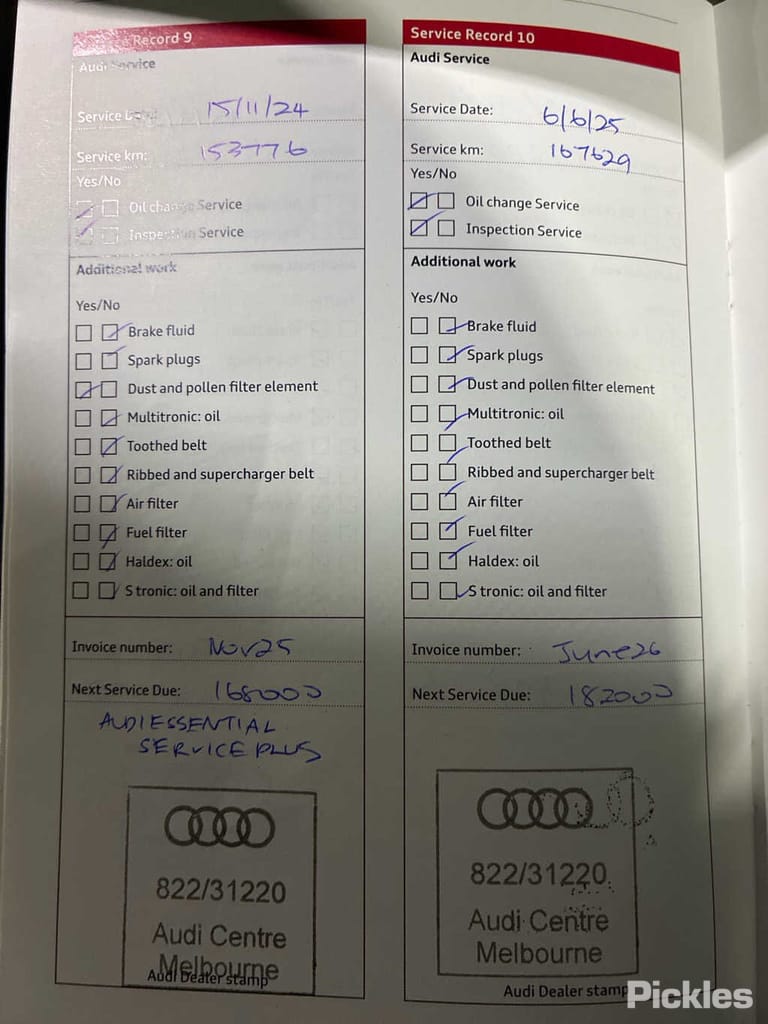 Service Record 9
Audi Service
Service Date: 15/11/24
Service km: 153776
Yes/No
Oil change Service
Inspection Service
Additional work
Yes/No
Brake fluid
Spark plugs
Dust and pollen filter element
Multitronic: oil
Toothed belt
Ribbed and supercharger belt
Air filter
Fuel filter
Haldex: oil
S tronic: oil and filter
Invoice number: Nov25
Next Service Due: 168000
AUDI ESSENTIAL
SERVICE PLUS
822/31220
Audi Centre
Melbourne
Audi Dealer stamp
Service Record 10
Audi Service
Service Date: 6/6/25
Service km: 167629
Yes/No
Oil change Service
Inspection Service
Additional work
Yes/No
Brake fluid
Spark plugs
Dust and pollen filter element
Multitronic: oil
Toothed belt
Ribbed and supercharger belt
Air filter
Fuel filter
Haldex: oil
S tronic: oil and filter
Invoice number: June26
Next Service Due: 182000
822/31220
Audi Centre
Melbourne
Audi Dealer stamp
Pickles